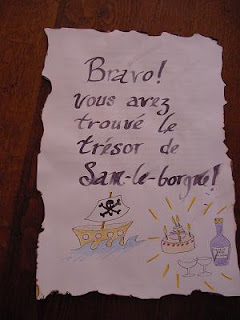 Bravo!
vous avez
trouvé le
trésor de
Sam-le-borgne!